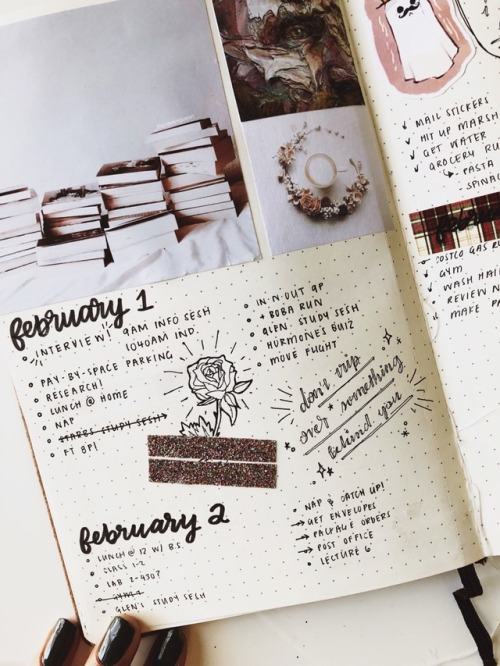 february 1
INTERVIEW! 9AM INFO SESH
1040AM IND.
PAY-BY-SPACE PARKING
RESEARCH!
LUNCH @ HOME
NAP
STARBS STUDY SESH
FT 8P!
IN-N-OUT 9P
+ BOBA RUN
GLEN. STUDY SESH
HORMONES QUIZ
MOVE FLIGHT
don't trip
over something
behind you
february 2
LUNCH @ 12 W/ B.S.
CLASS 1-2
LAB 2-430?
GLEN. STUDY SESH
NAP & CATCH UP!
GET ENVELOPES
PACKAGE ORDERS
POST OFFICE
LECTURE 6
MAIL STICKERS
HIT UP MARSH
GET WATER
GROCERY RU
PASTA
SPINAC
februa
COSTCO GAS R
GYM
WASH HAI
REVIEW N
MAKE